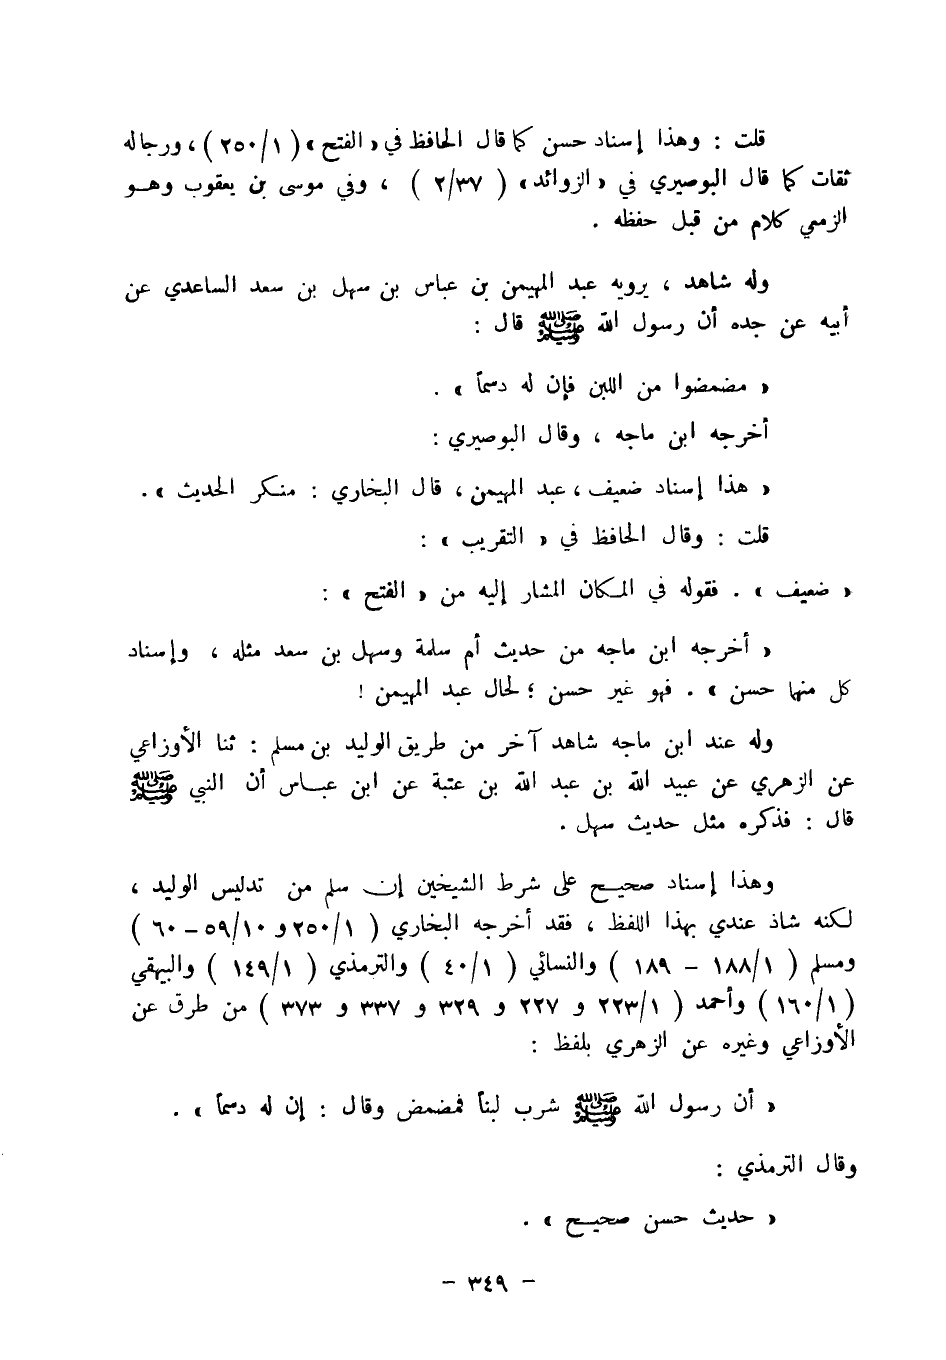 قلت : وهذا إسناد حسن كما قال الحافظ في « الفتح » ( ١/ ٢٥٠ ) ، ورجاله
ثقات كما قال البوصيري في « الزوائد » ( ٢/٣٧ ) ، وفي موسى بن يعقوب وهــو
الزمعي كلام من قبل حفظه .
وله شاهد ، يرويه عبد المهيمن بن عباس بن سهل بن سعد الساعدي عن
أبيه عن جده أن رسول الله ﷺ قال :
« مضمضوا من اللبن فإن له دسماً » .
أخرجه ابن ماجه ، وقال البوصيري :
« هذا إسناد ضعيف ، عبد المهيمن ، قال البخاري : منـكر الحديث » .
قلت : وقال الحافظ في « التقريب » :
« ضعيف » . فقوله في المـكان المشار إليه من « الفتح » :
« أخرجه ابن ماجه من حديث أم سلمة وسهل بن سعد مثله ، وإسناد
كل منها حسن » . فهو غير حسن ؛ لحال عبد المهيمن !
وله عند ابن ماجه شاهد آخر من طريق الوليد بن مسلم : ثنا الأوزاعي
عن الزهري عن عبيد الله بن عبد الله بن عتبة عن ابن عبـاس أن النبي ﷺ
قال : فذكره مثل حديث سهل .
وهذا إسناد صحيـح على شرط الشيخين إن سلم من تدليس الوليد ،
لكنه شاذ عندي بهذا اللفظ ، فقد أخرجه البخاري ( ١/ ٢٥٠ و ١٠/ ٥٩ – ٦٠ )
ومسلم ( ١/ ١٨٨ – ١٨٩ ) والنسائي ( ١/ ٤٠ ) والترمذي ( ١/ ١٤٩ ) والبيهقي
( ١/ ١٦٠ ) وأحمد ( ١/ ٢٢٣ و ٢٢٧ و ٣٢٩ و ٣٣٧ و ٣٧٣ ) من طرق عن
الأوزاعي وغيره عن الزهري بلفظ :
« أن رسول الله ﷺ شرب لبناً فمضمض وقال : إن له دسماً » .
وقال الترمذي :
« حديث حسن صحيـح » .
– ٣٤٩ –